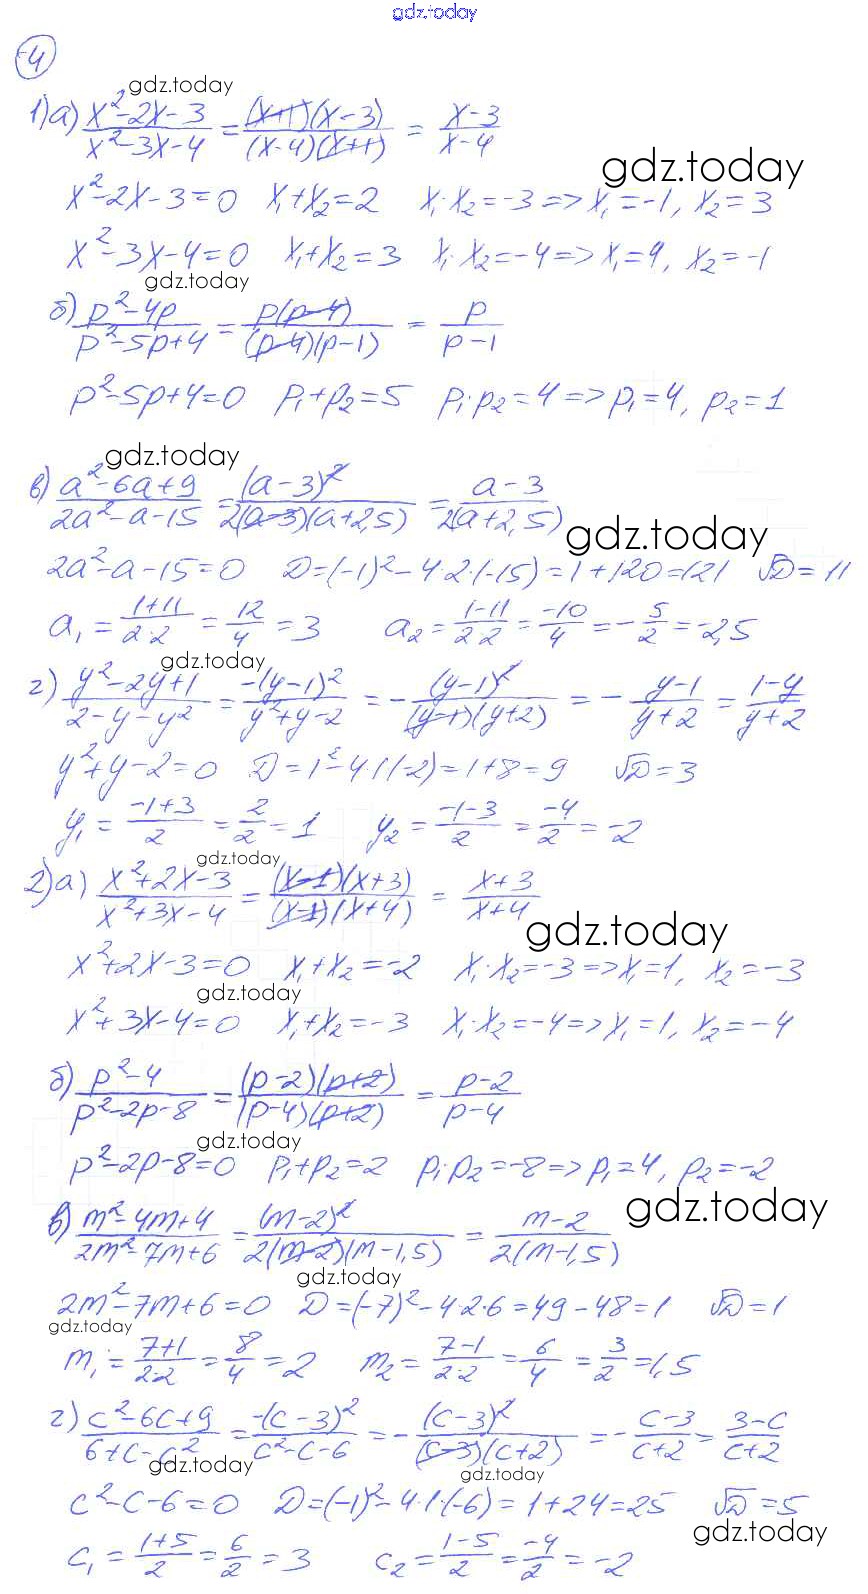 gdz.today
4
gdz.today
1) а) (x²-2x-3)/(x²-3x-4) = ((x+1)(x-3))/((x-4)(x+1)) = (x-3)/(x-4)
gdz.today
x²-2x-3=0 x₁+x₂=2 x₁·x₂=-3=>x₁=-1, x₂=3
x²-3x-4=0 x₁+x₂=3 x₁·x₂=-4=>x₁=4, x₂=-1
gdz.today
б) (p²-4p)/(p²-5p+4) = (p(p-4))/((p-4)(p-1)) = p/(p-1)
p²-5p+4=0 p₁+p₂=5 p₁·p₂=4=>p₁=4, p₂=1
gdz.today
в) (a²-6a+9)/(2a²-a-15) = (a-3)²/(2(a-3)(a+2,5)) = (a-3)/(2(a+2,5))
gdz.today
2a²-a-15=0 D=(-1)²-4·2·(-15)=1+120=121 √D=11
a₁=(1+11)/(2·2)=12/4=3 a₂=(1-11)/(2·2)=-10/4=-5/2=-2,5
gdz.today
г) (y²-2y+1)/(2-y-y²) = -(y-1)²/(y²+y-2) = -(y-1)²/((y-1)(y+2)) = -(y-1)/(y+2) = (1-y)/(y+2)
y²+y-2=0 D=1²-4·1·(-2)=1+8=9 √D=3
y₁=(-1+3)/2=2/2=1 y₂=(-1-3)/2=-4/2=-2
gdz.today
2) а) (x²+2x-3)/(x²+3x-4) = ((x-1)(x+3))/((x-1)(x+4)) = (x+3)/(x+4)
gdz.today
x²+2x-3=0 x₁+x₂=-2 x₁·x₂=-3=>x₁=1, x₂=-3
gdz.today
x²+3x-4=0 x₁+x₂=-3 x₁·x₂=-4=>x₁=1, x₂=-4
б) (p²-4)/(p²-2p-8) = ((p-2)(p+2))/((p-4)(p+2)) = (p-2)/(p-4)
gdz.today
p²-2p-8=0 p₁+p₂=2 p₁·p₂=-8=>p₁=4, p₂=-2
gdz.today
в) (m²-4m+4)/(2m²-7m+6) = (m-2)²/(2(m-2)(m-1,5)) = (m-2)/(2(m-1,5))
gdz.today
2m²-7m+6=0 D=(-7)²-4·2·6=49-48=1 √D=1
gdz.today
m₁=(7+1)/(2·2)=8/4=2 m₂=(7-1)/(2·2)=6/4=3/2=1,5
г) (c²-6c+9)/(6+c-c²) = -(c-3)²/(c²-c-6) = -(c-3)²/((c-3)(c+2)) = -(c-3)/(c+2) = (3-c)/(c+2)
gdz.today
gdz.today
c²-c-6=0 D=(-1)²-4·1·(-6)=1+24=25 √D=5
gdz.today
c₁=(1+5)/2=6/2=3 c₂=(1-5)/2=-4/2=-2